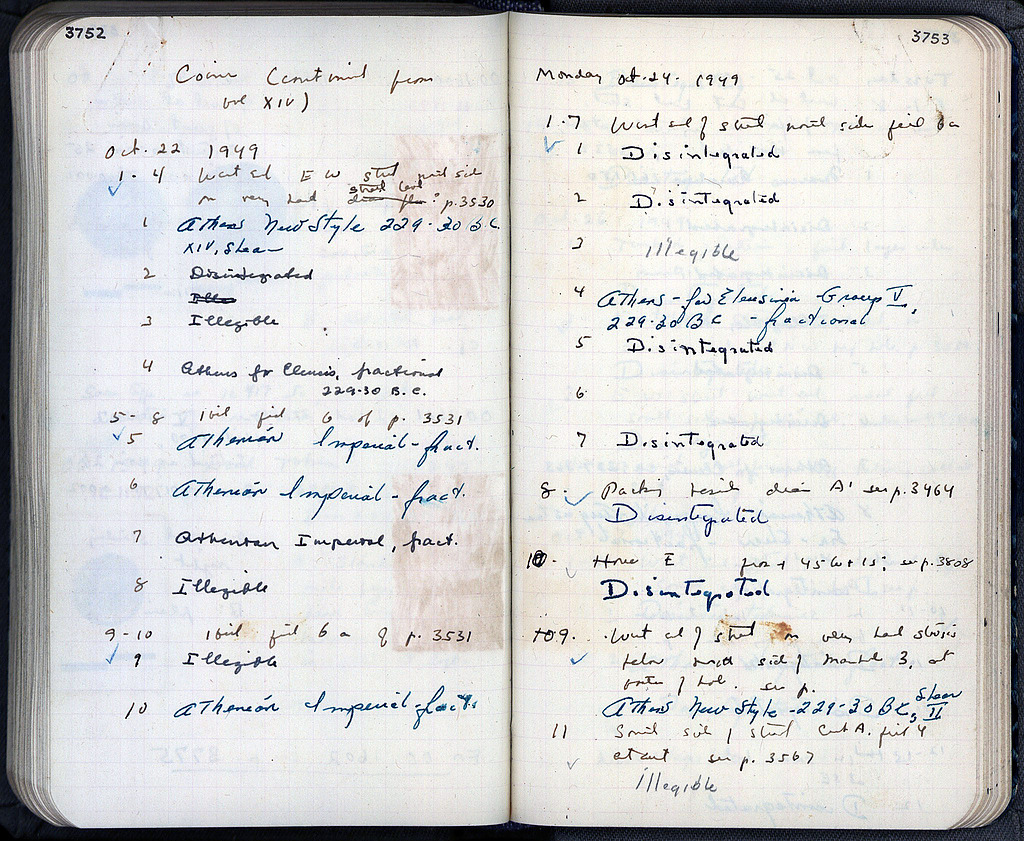 3752
Coins Continued from
vol XIV)
Oct. 22 1949
1-4 West end E W street north side
on very hard street level p. 3530
1 Athens New Style 229-30 B.C.
XIV, Shear
2 Disintegrated
3 Illegible
4 Athens for Eleusis, fractional
229-30 B.C.
5-8 ibid 6 of p. 3531
5 Athenian Imperial-fract.
6 Athenian Imperial-fract.
7 Athenian Imperial, fract.
8 Illegible
9-10 ibid 6 a of p. 3531
9 Illegible
10 Athenian Imperial-fract.
3753
Monday Oct. 24. 1949
1-7 West end of street north side 6a
1 Disintegrated
2 Disintegrated
3 Illegible
4 Athens-for Eleusinia Group V,
229-30 BC - fractional
5 Disintegrated
6
7 Disintegrated
8. Packing drain A' see p. 3464
Disintegrated
10. House E see p. 3808
Disintegrated
9. West end of street on very hard
below north side of 3, at
see p.
Athens New Style-229-30 BC, Shear II
11 South side of street Cut A.
see p. 3567
Illegible